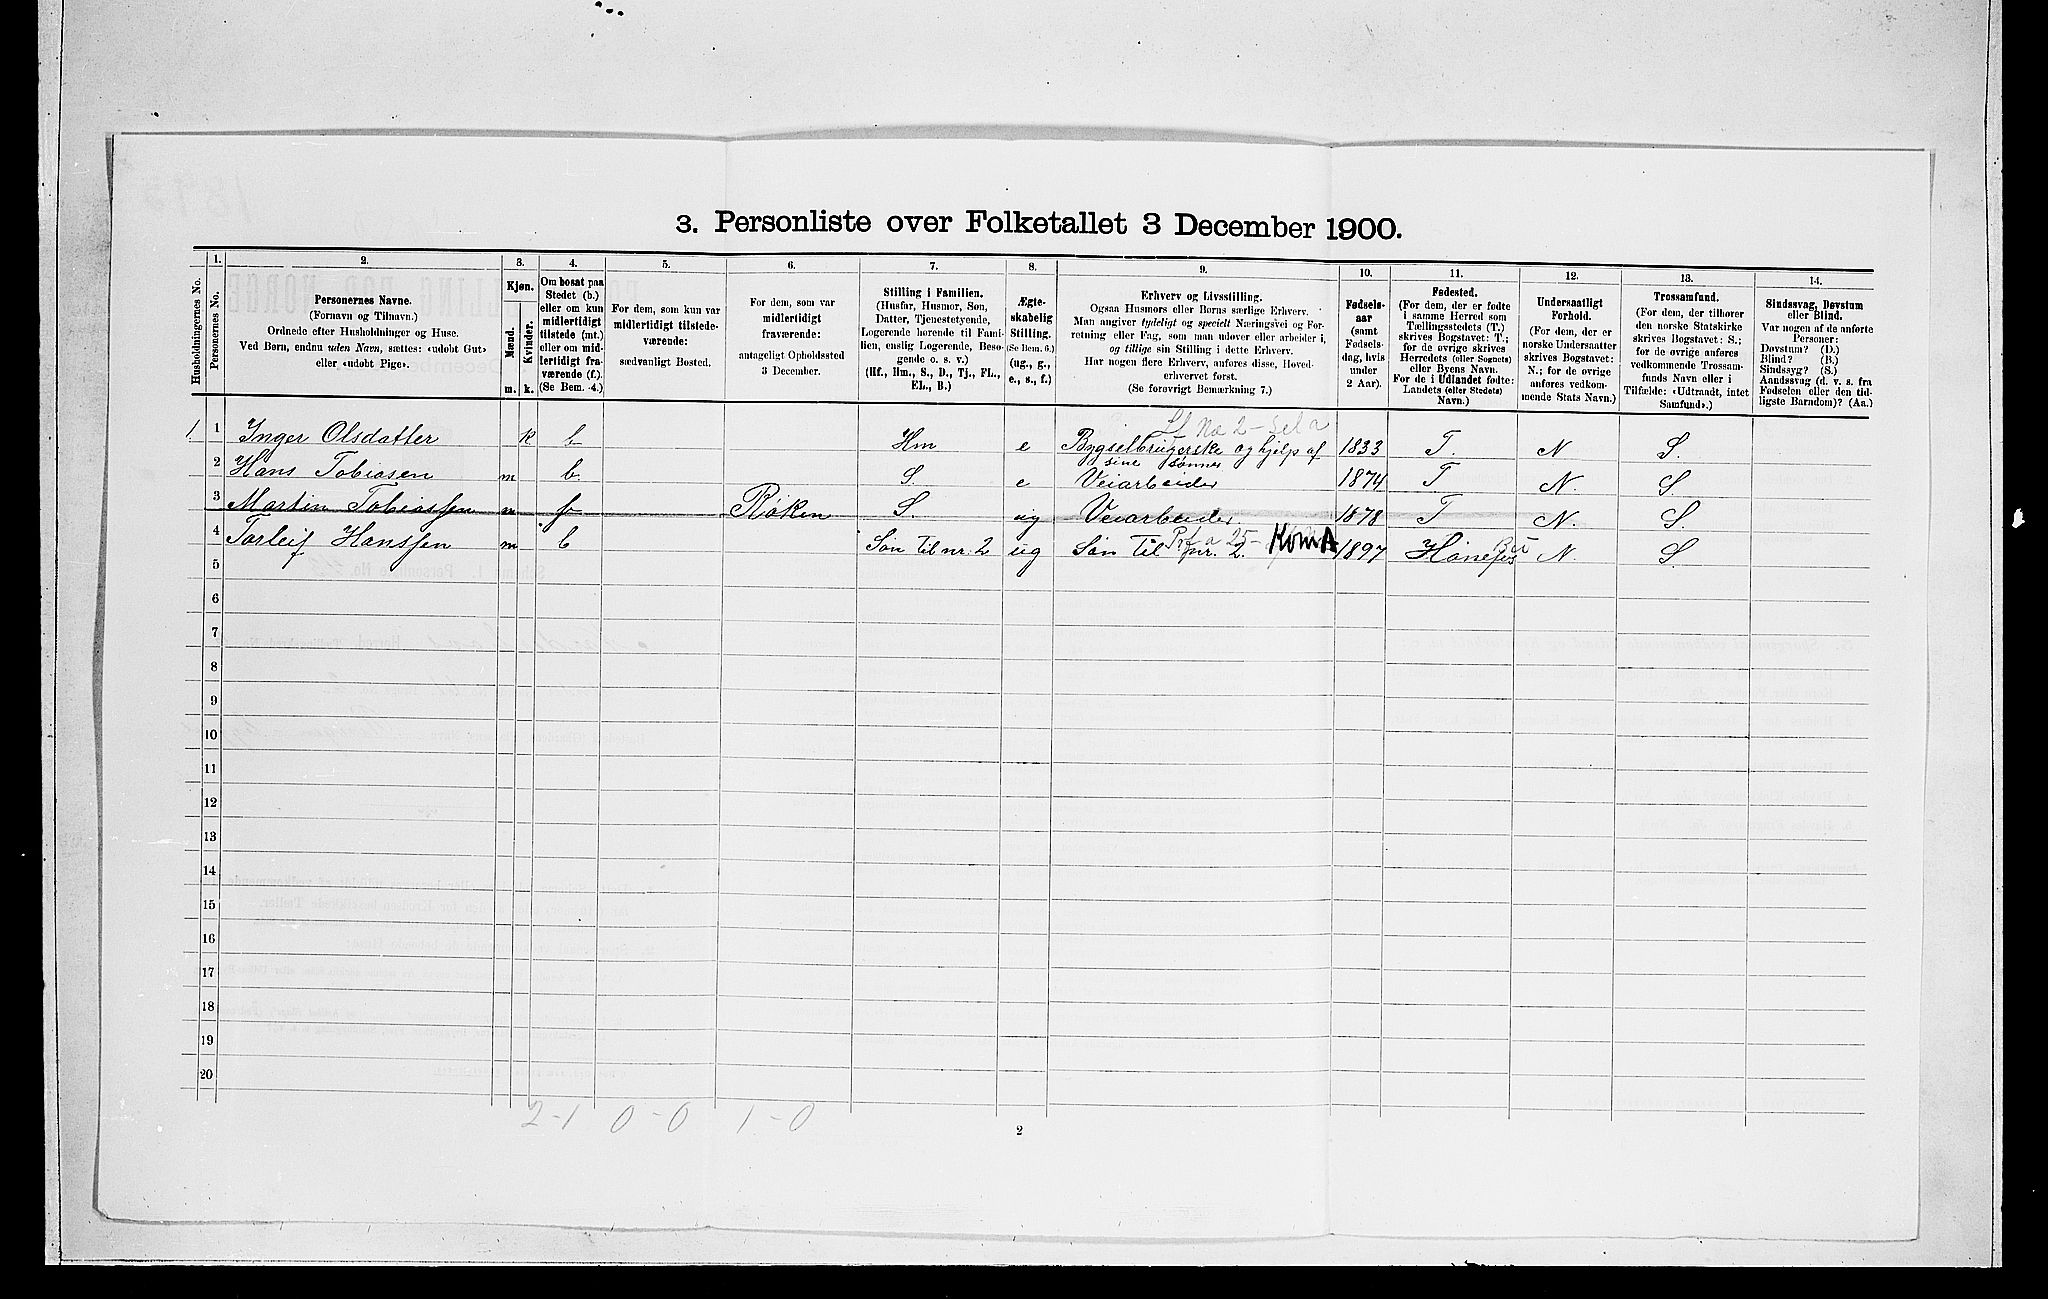 3. Personliste over Folketallet 3 December 1900.
Husholdningernes No.
1. Personernes No.
2. Personernes Navne. (Fornavn og Tilnavn.) Ordnede efter Husholdninger og Huse. Ved Børn, endnu uden Navn, sættes: «udobt Gut» eller «udobt Pige».
3. Kjøn. Mænd. m. Kvinder. k.
4. Om bosat paa Stedet (b.) eller om kun midlertidigt tilstede (mt.) eller om midlertidigt fraværende (f.). (Se Bem. 4.)
5. For dem, som kun var midlertidigt tilstedeværende: sædvanligt Bosted.
6. For dem, som var midlertidigt fraværende: antageligt Opholdssted 3 December.
7. Stilling i Familien. (Husfar, Husmor, Søn, Datter, Tjenestetyende, Logerende hørende til Familien, enslig Logerende, Besøgende o. s. v.) (Hf., Hm., S., D., Tj., FL., EL., B.)
8. Ægteskabelig Stilling. (Se Bem. 6.) (ug., g., e., s., f.)
9. Erhverv og Livsstilling. Ogsaa Husmors eller Børns særlige Erhverv. Man angiver tydeligt og specielt Næringsvei og Forretning eller Fag, som man udøver eller arbeider i, og tillige sin Stilling i dette Erhverv. Har nogen flere Erhverv, anføres disse, Hovederhvervet først. (Se forøvrigt Bemærkning 7.)
10. Fødselsaar (samt Fødselsdag, hvis under 2 Aar).
11. Fødested. (For dem, der er fødte i samme Herred som Tællingsstedets (T.) skrives Bogstavet: T.; for de øvrige skrives Herredets (eller Sognets) eller Byens Navn. For de i Udlandet fødte: Landets (eller Stedets) Navn.)
12. Undersaatligt Forhold. (For dem, der er norske Undersaatter skrives Bogstavet: N.; for de øvrige anføres vedkommende Stats Navn.)
13. Trossamfund. (For dem, der tilhører den norske Statskirke skrives Bogstavet: S.; for de øvrige anføres vedkommende Trossamfunds Navn eller i Tilfælde: «Udtraadt, intet Samfund».)
14. Sindssvag, Døvstum eller Blind. Var nogen af de anførte Personer: Døvstum? (D.) Blind? (B.) Sindssyg? (S.) Aandssvag (d. v. s. fra Fødselen eller den tidligste Barndom)? (Aa.)
1. 1 Inger Olsdatter k b Hm e Bygselbrugerske og hjelp af sine sønner 1833 T. N S.
2 Hans Tobiasen m b. S. e Veiarbeider 1874 T N. S.
3 Martin Tobiassen m f Røken S. ug Veiarbeider. 1878 T N. S.
4 Torleif Hanssen m b Søn til nr. 2 ug Søn til nr. 2. Kom A 1897 Hønefos Bu N. S.
5
6
7
8
9
10
11
12
13
14
15
16
17
18
19
20
2-1 0-0 1-0
2